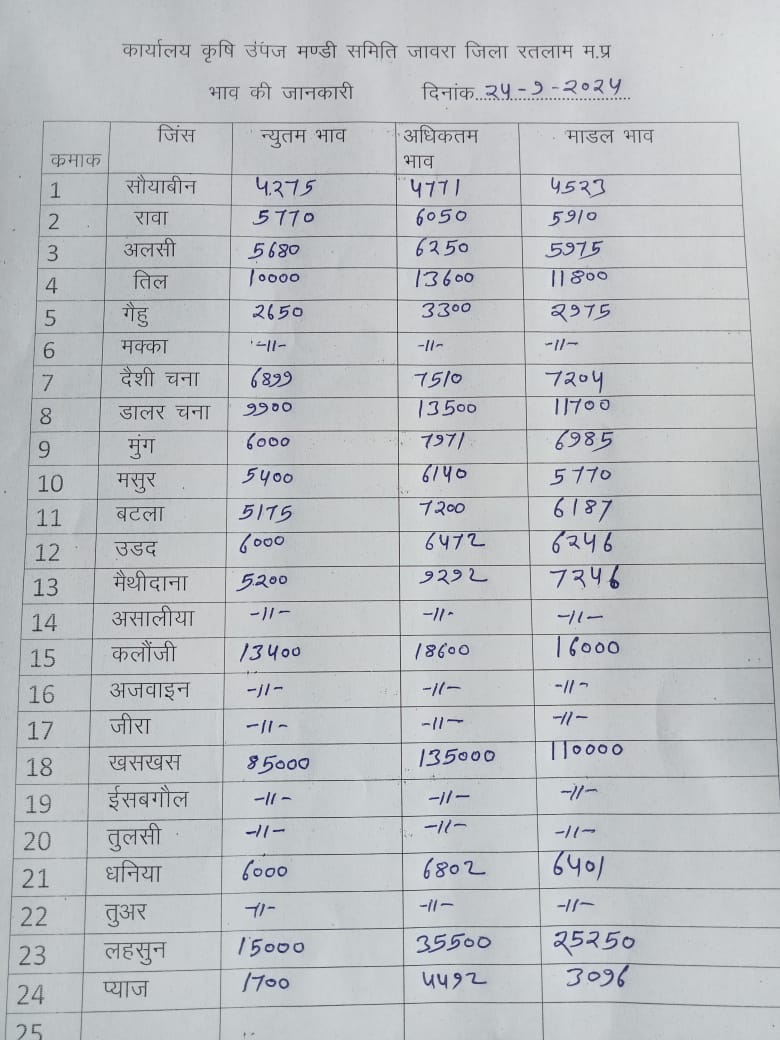 कार्यालय कृषि उपज मण्डी समिति जावरा जिला रतलाम म.प्र
भाव की जानकारी दिनांक 24-9-2024
कमाक जिंस न्युतम भाव अधिकतम भाव माडल भाव
1 सौयाबीन 4275 4771 4523
2 रावा 5770 6050 5910
3 अलसी 5680 6250 5975
4 तिल 10000 13600 11800
5 गैहु 2650 3300 2975
6 मक्का -11- -11- -11-
7 दैशी चना 6899 7510 7204
8 डालर चना 9900 13500 11700
9 मुंग 6000 7971 6985
10 मसुर 5400 6140 5770
11 बटला 5175 7200 6187
12 उडद 6000 6472 6246
13 मैथीदाना 5200 9292 7246
14 असालीया -11- -11- -11-
15 कलौंजी 13400 18600 16000
16 अजवाइन -11- -11- -11-
17 जीरा -11- -11- -11-
18 खसखस 85000 135000 110000
19 ईसबगौल -11- -11- -11-
20 तुलसी -11- -11- -11-
21 धनिया 6000 6802 6401
22 तुअर -11- -11- -11-
23 लहसुन 15000 35500 25250
24 प्याज 1700 4492 3096
25